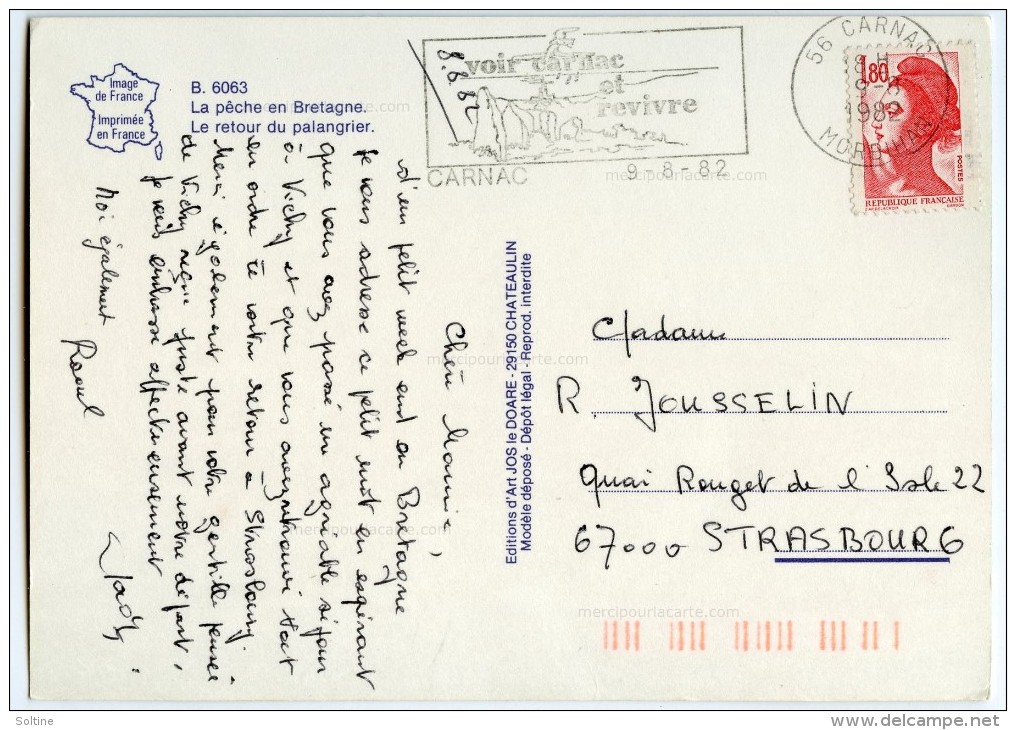 Image
de France
Imprimée
en France
B. 6063
La pêche en Bretagne.
Le retour du palangrier.
8.8.82
voir carnac
et
revivre
CARNAC
9-8-82
56 CARNAC
8 H
9-8
1982
MORBIHAN
1,80
POSTES
REPUBLIQUE FRANÇAISE
Chère Mamie,
d'un petit week end en Bretagne
je vous adresse ce petit mot en espérant
que vous avez passé un agréable séjour
à Vichy et que vous avez retrouvé tout
en ordre à votre retour à Strasbourg.
Merci également pour votre gentille pensée
de Vichy reçue juste avant notre départ,
je vous embrasse affectueusement
Moi également
Raoul
Editions d'Art JOS le DOARE - 29150 CHATEAULIN
Modèle déposé - Dépôt légal - Reprod. interdite
Madame
R. JOUSSELIN
Quai Rouget de l'Isle 22
67000 STRASBOURG
mercipourlacarte.com
mercipourlacarte.com
mercipourlacarte.com
mercipourlacarte.com
mercipourlacarte.com
mercipourlacarte.com
Soltine
www.delcampe.net